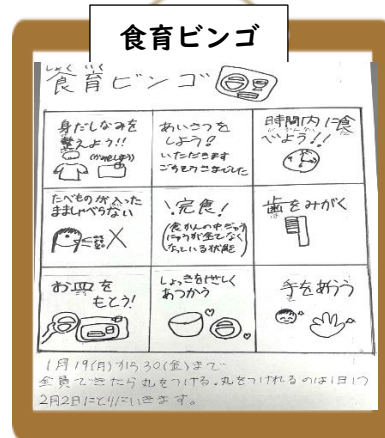 食育ビンゴ
しょく いく
食育ビンゴ
身だしなみを
整えよう!!
あいさつを
しよう!
いただきます
ごちそうさまでした
時間内に食
べよう!!
たべものが入った
まましゃべらない
完食!
歯をみがく
お皿を
もとう!
しょっきを正しく
あつかう
手をあらう
1月19(月)から30(金)まで
全員できたら丸をつける。丸をつけれるのは1日1つ
2月2日にとりにいきます。